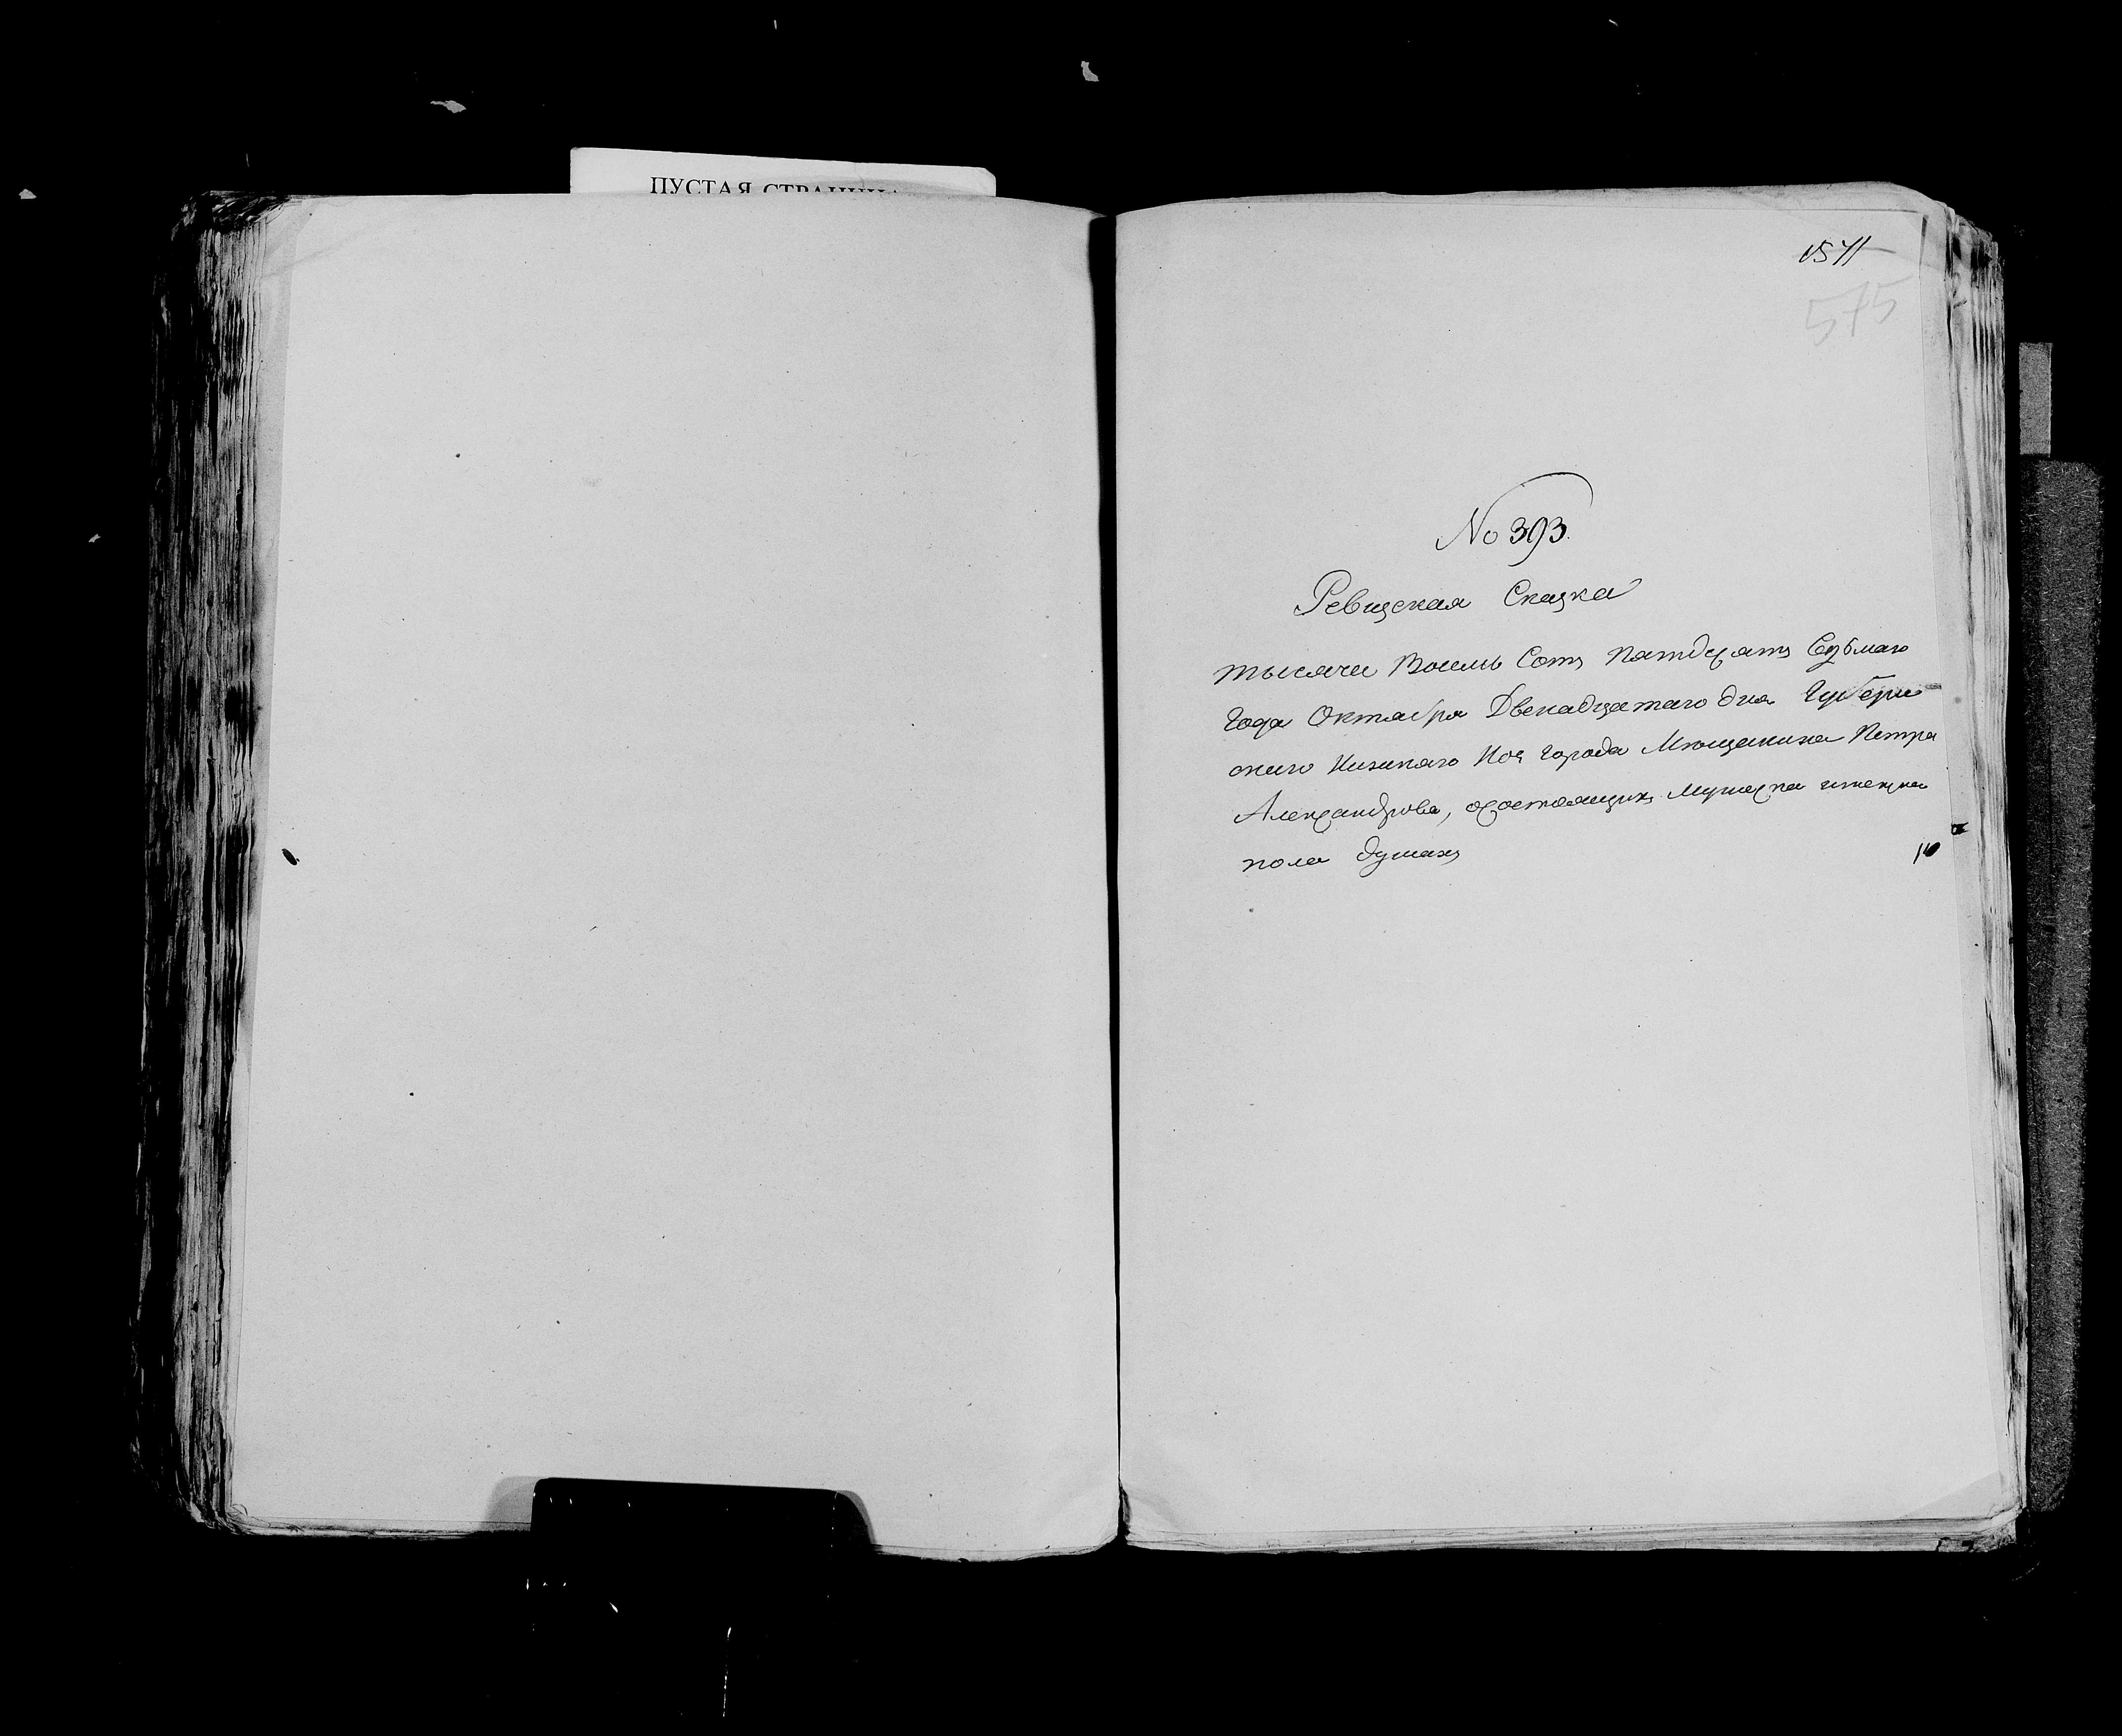 ПУСТАЯ СТРАНИЦА
1571
575
№ 393.
Ревизская Сказка
тысяча Восемь Сотъ Пятдесятъ Седьмаго
Года Октября Двенадцатаго дня Губерн
скаго Нижняго Нов города Мещанина Петра
Александрова, осостоящихъ Мужеска и женска
пола душахъ